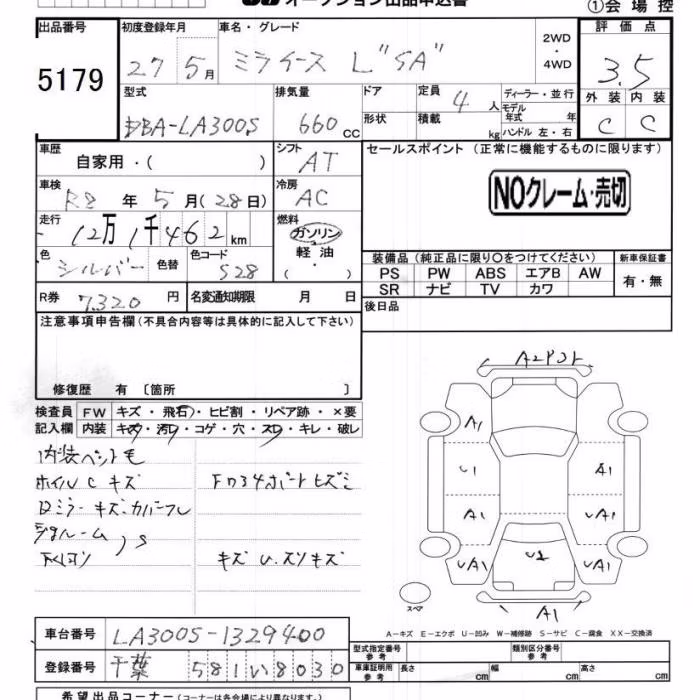 オークション出品申込書
①会場控
出品番号
5179
初度登録年月
27 5月
車名・グレード
ミライース L"SA"
2WD
・
4WD
評価点
3.5
外装 内装
C C
型式
DBA-LA300S
排気量
660cc
ドア
形状
定員 4人
積載 kg
ディーラー・並行
モデル年式 年
ハンドル 左・右
車歴
自家用・( )
シフト
AT
セールスポイント (正常に機能するものに限ります)
NOクレーム・売切
車検
R2年 5月(28日)
冷房
AC
走行
12万1千462km
燃料
ガソリン
軽油
( ・ )
色
シルバー 色替
色コード
S28
装備品(純正品に限り○をつけてください)
新車保証書
PS PW ABS エアB AW
SR ナビ TV カワ
有・無
R券 7,320円
名変通知期限 月 日
後日品
注意事項申告欄(不具合内容等は具体的に記入して下さい)
修復歴 有〔箇所 〕
検査員記入欄
FW キズ・飛石・ヒビ割・リペア跡・×要
内装 キズ・汚レ・コゲ・穴・スレ・キレ・破レ
内装ペット毛
ホイルC キズ
Fガラスボート ヒズミ
Dミラーキズ.カバーフレ
S
下廻リ
キズ U.スリキズ
A2P31
A1
U1
A1
A1
UA1
UA1
UA1
U2
A1
スペア
A-キズ E-エクボ U-凹み W-補修跡 S-サビ C-腐食 XX-交換済
車台番号
LA300S-1329400
登録番号
千葉 581い8030
型式指定番号 参考
類別区分番号 参考
車庫証明用 参考
長さ cm 幅 cm 高さ cm
希望出品コーナー(コーナーは各会場により異なります。)